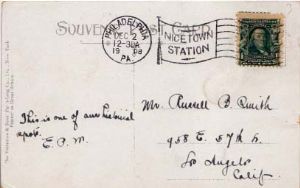 SOUVENIR POST CARD
PHILADELPHIA
DEC 2
12-30A
1908
PA.
NICETOWN
STATION
This is one of our historical
spots.
E. P. M.
Mr. Russell B. Smith
958 E. 57th St.
Los Angeles
Calif.